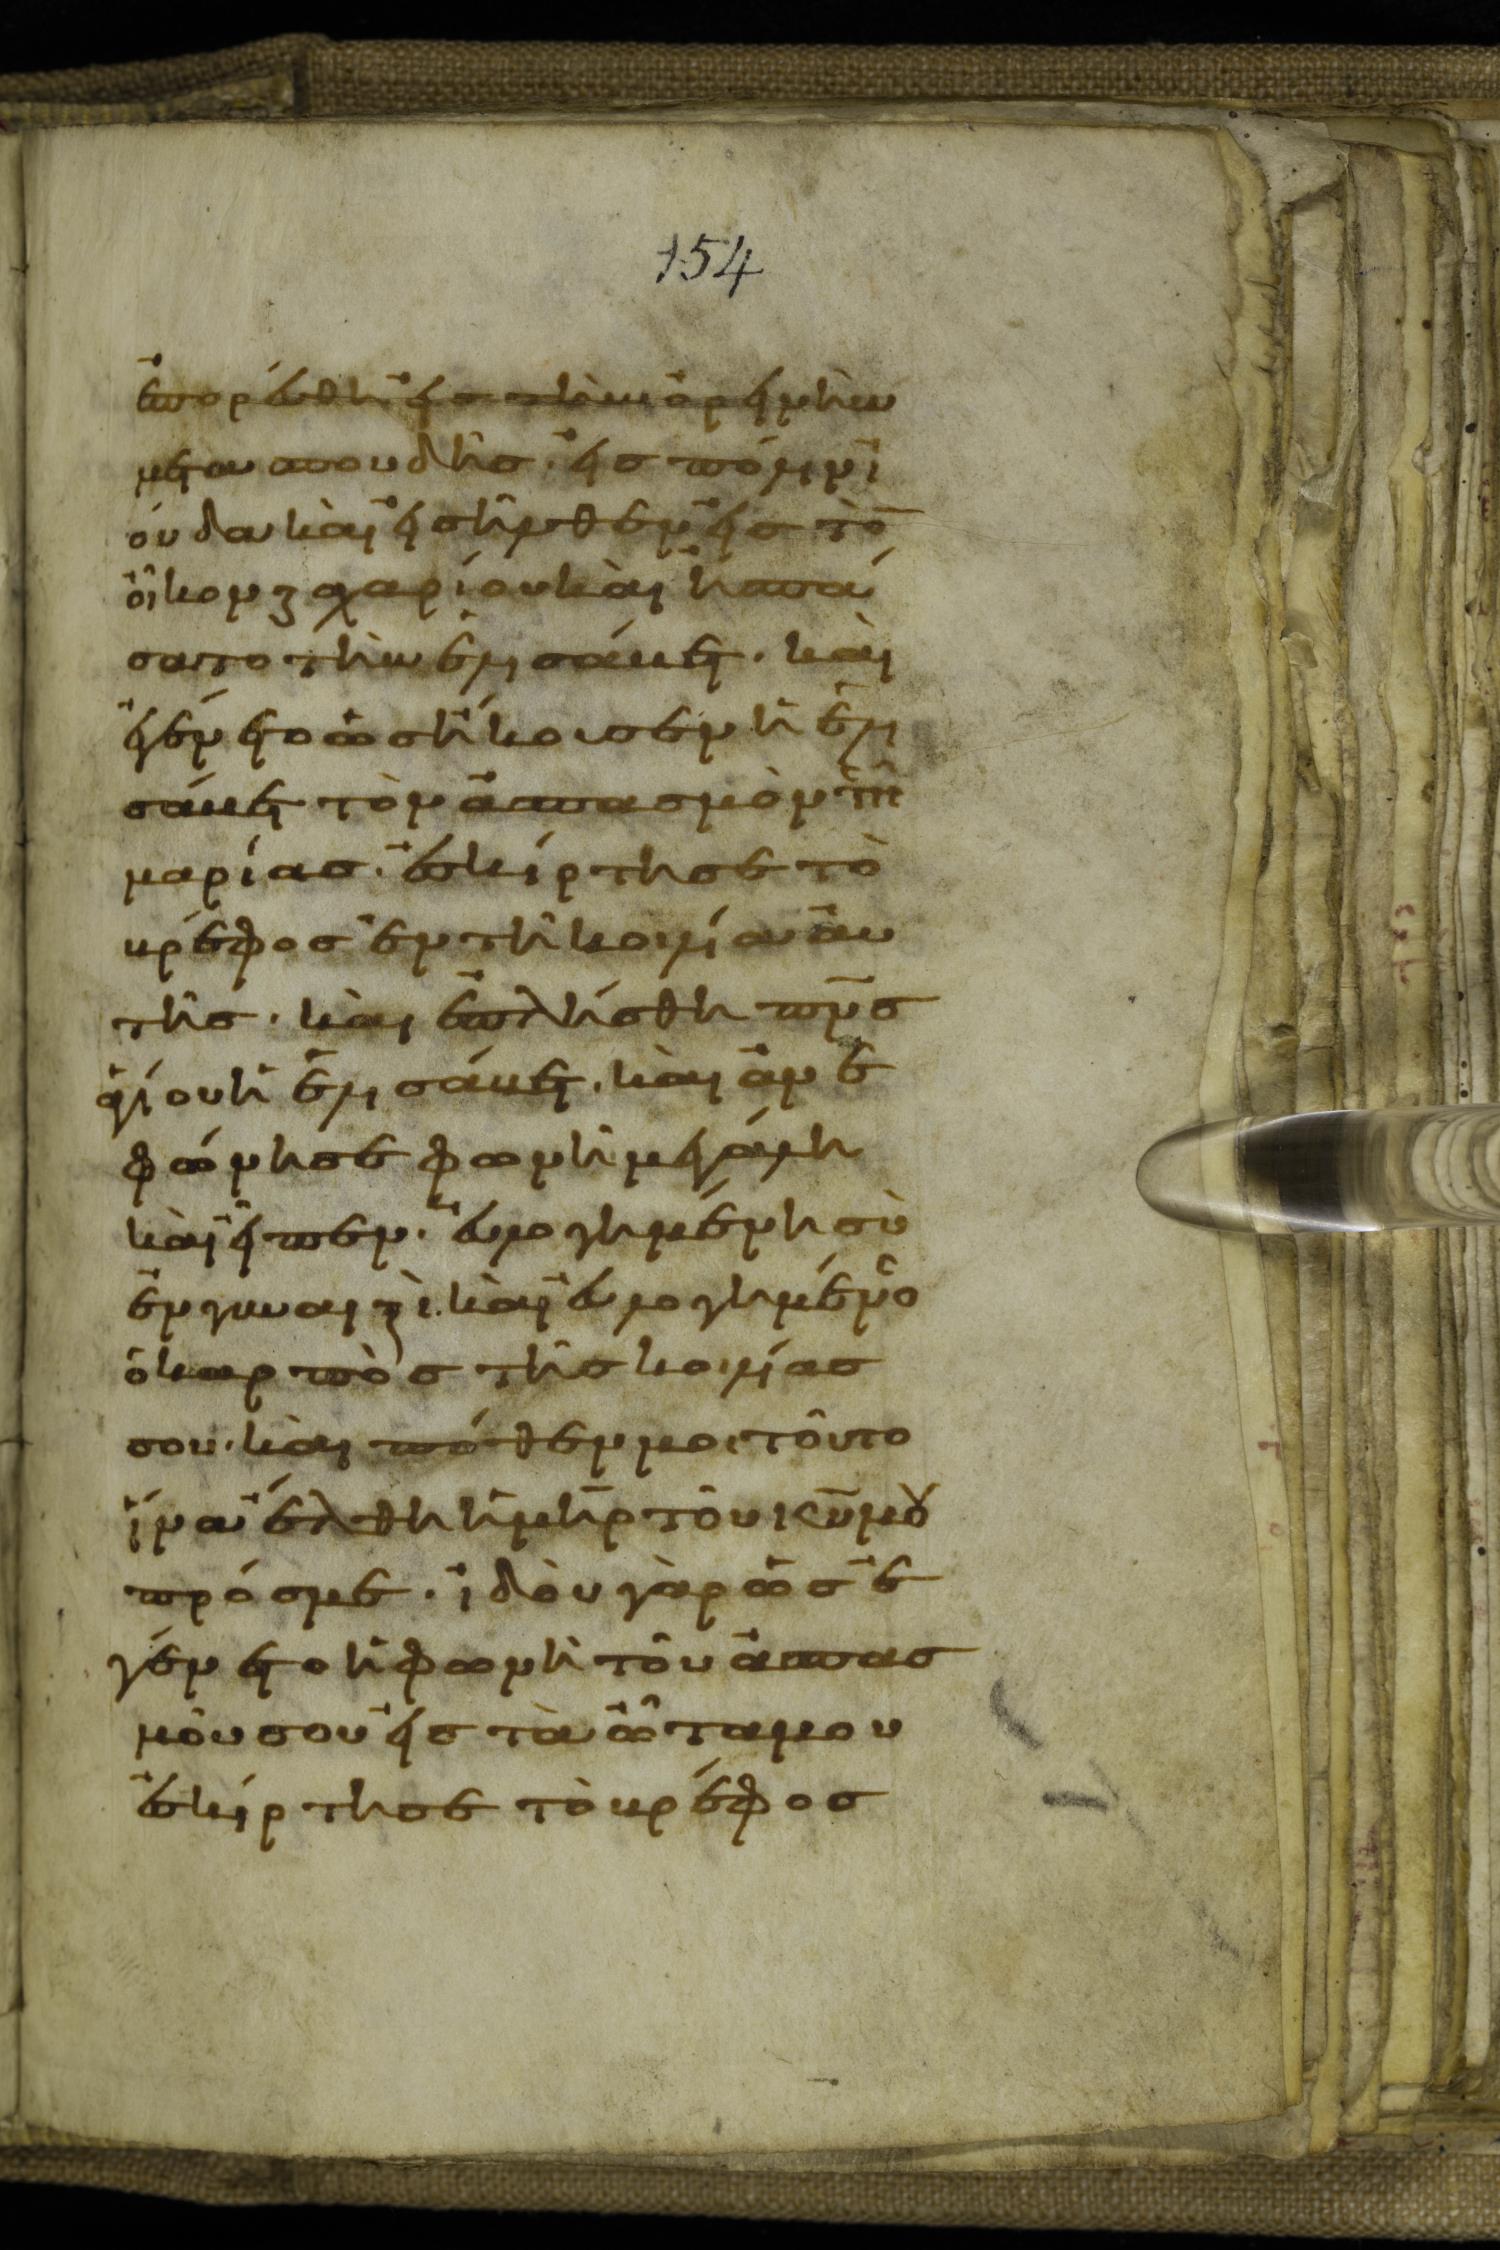 154
ἐπορεύθη εἰς τὴν ὀρεινὴν
μετα σπουδῆς· εἰς πόλιν ϊ
ούδα καὶ εἰσῆλθεν εἰς τὸ̄
οἶκον ζαχαρίου καὶ ἠσπά
σατο τὴν ἐλισάβετ· καὶ
ἐγένετο ὡς ἤκουσεν ἡ ἐλι
σάβετ τὸν ἀσπασμὸν τῆς
μαρίας· ἐσκίρτησε τὸ
βρέφος ἐν τῆ κοιλία αὐ
τῆς· καὶ ἐπλήσθη πν̅ς
ἁγίου ἡ ἐλισάβετ· καὶ ἀνε
φώνησε φωνῆ μεγάλη
καὶ εἶπεν· εὐλογημένη σὺ
ἐν γυναιξὶ· καὶ εὐλογημένο
ὁ καρπὸς τῆς κοιλίας
σου· καὶ πόθεν μοι τοῦτο
ἵνα ἔλθη ἡ μη̅ρ τοῦ κυ̅ μου
πρός με· ἰδοὺ γὰρ ὡς ἐ
γένετο ἡ φωνὴ τοῦ ἀσπασ
μοῦ σου εἰς τὰ ὦτα μου
ἐσκίρτησε τὸ βρέφος